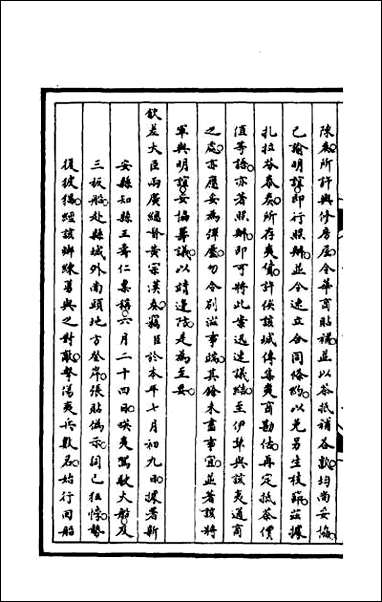 陳處所許與修房屋令華商貼補並以茶抵補各款均尚妥協
已諭明誼即行照辦並令速立合同條約以免另生枝節茲據
扎拉芬泰奏所存夷貨許俟該城傳集夷商勘估再定抵茶價
值等語亦著照辦即可將此案迅速議結至伊犂與該夷通商
之處亦應妥為彈壓勿令別滋事端其餘未盡事宜並著該將
軍與明誼妥協籌議以靖邊陲是為至要
欽差大臣兩廣總督黃宗漢奏竊臣於本年七月初九日據署新
安縣知縣王壽仁稟稱六月二十四日暎夷駕駛大船及
三板船赴縣城外南頭地方登岸張貼偽示詞已狂悖勢
復披猖經該鄉練勇與之對敵擊傷夷兵數名始行回船